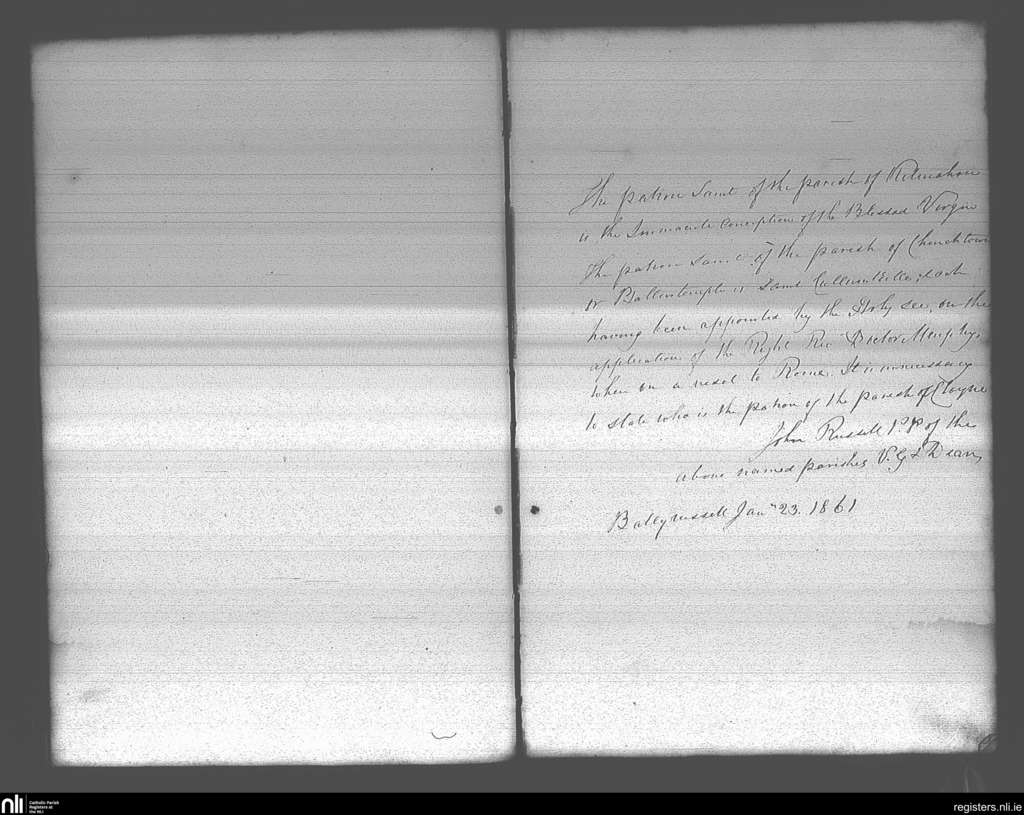 The patron Saint of the parish of Kilmahon
is the Immaculate Conception of the Blessed Virgin
The patron Saint of the parish of Churchtown
or Ballintemple is Saint Cullumbkille; each
having been appointed by the Holy See, on the
application of the Right Revd Doctor Murphy,
when on a visit to Rome. It is unnecessary
to state who is the patron of the parish of Cloyne
John Russell P.P. of the
above named parishes V.G. & Dean,
Ballyrussell Jany 23. 1861
nli Catholic Parish
Registers at
the NLI
registers.nli.ie